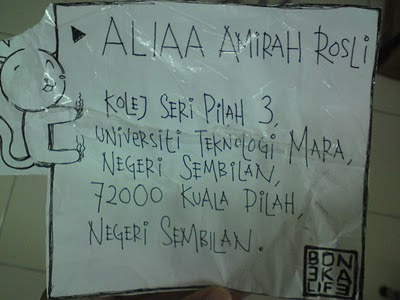 ALIAA AMIRAH ROSLI
KOLEJ SERI PILAH 3,
UNIVERSITI TEKNOLOGI MARA,
NEGERI SEMBILAN,
72000 KUALA PILAH,
NEGERI SEMBILAN.
BON
EKA
LIFE